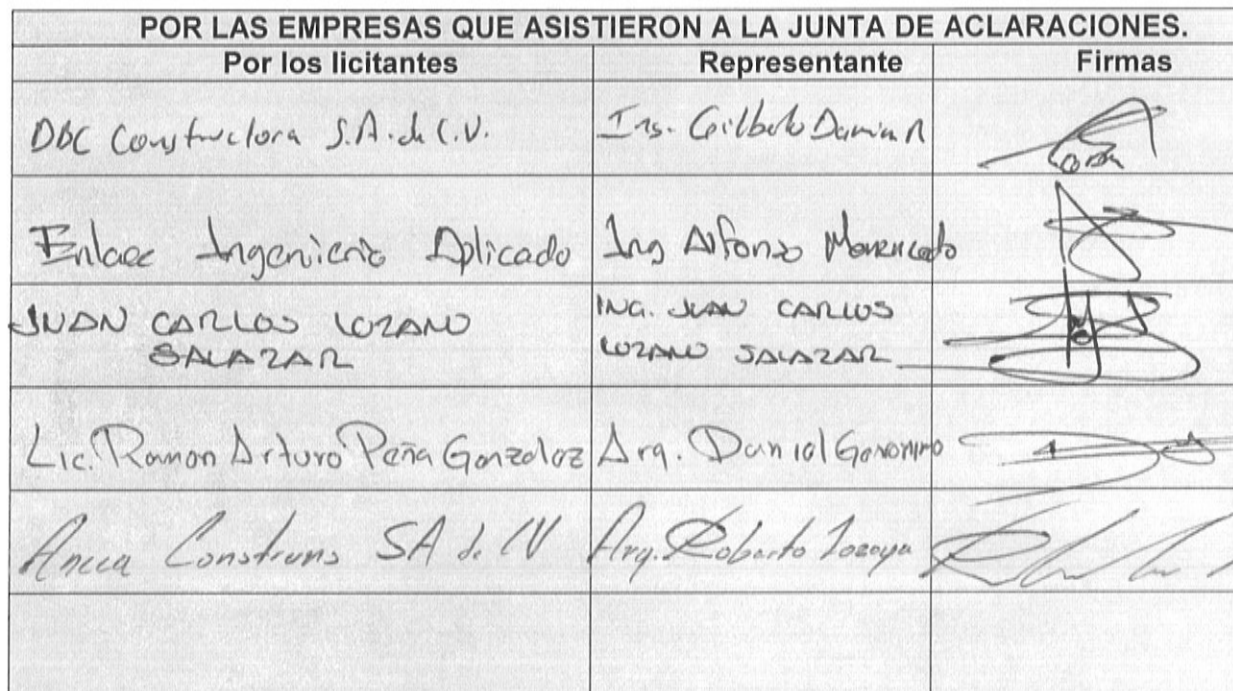 POR LAS EMPRESAS QUE ASISTIERON A LA JUNTA DE ACLARACIONES.
Por los licitantes Representante Firmas
DBC Constructora S.A. de C.V. Ing. Gilberto Damian R
Enlace Ingenieria Aplicada Ing Alfonso
JUAN CARLOS LOZANO ING. JUAN CARLOS
SALAZAR LOZANO SALAZAR
Lic. Ramon Arturo Peña Gonzalez Arq. Daniel Geronimo
SA de CV Arq. Roberto Lozoya